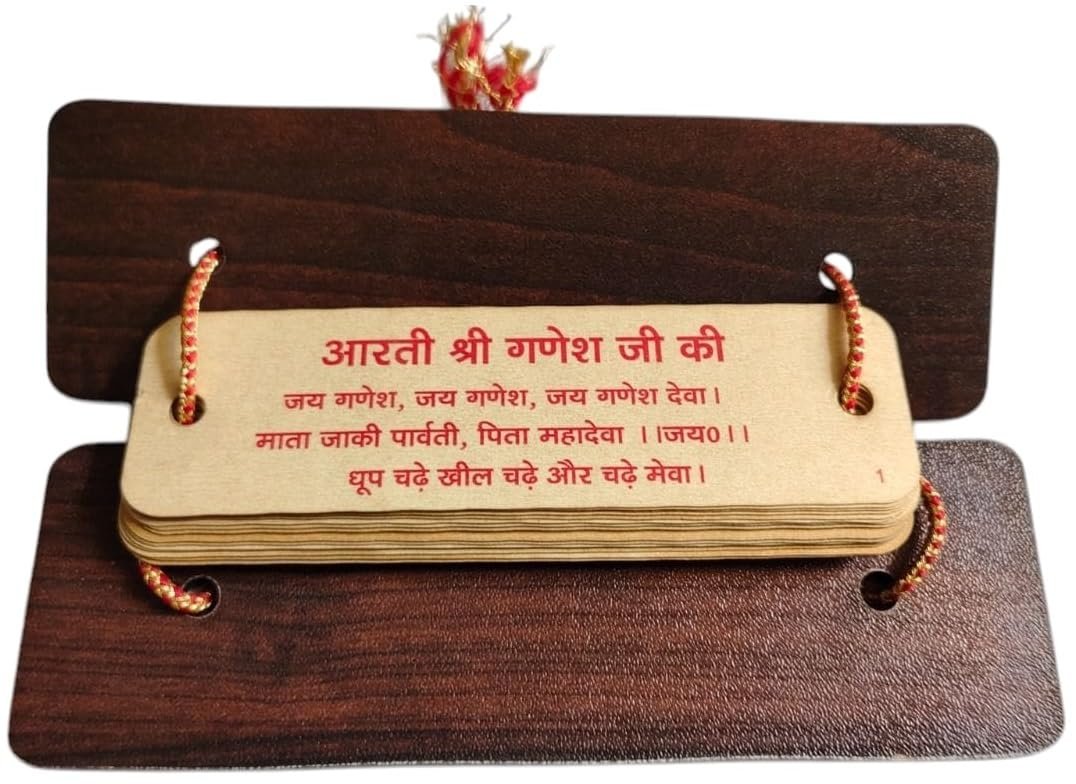 आरती श्री गणेश जी की
जय गणेश, जय गणेश, जय गणेश देवा।
माता जाकी पार्वती, पिता महादेवा ।।जय0।।
धूप चढ़े खील चढ़े और चढ़े मेवा।
1